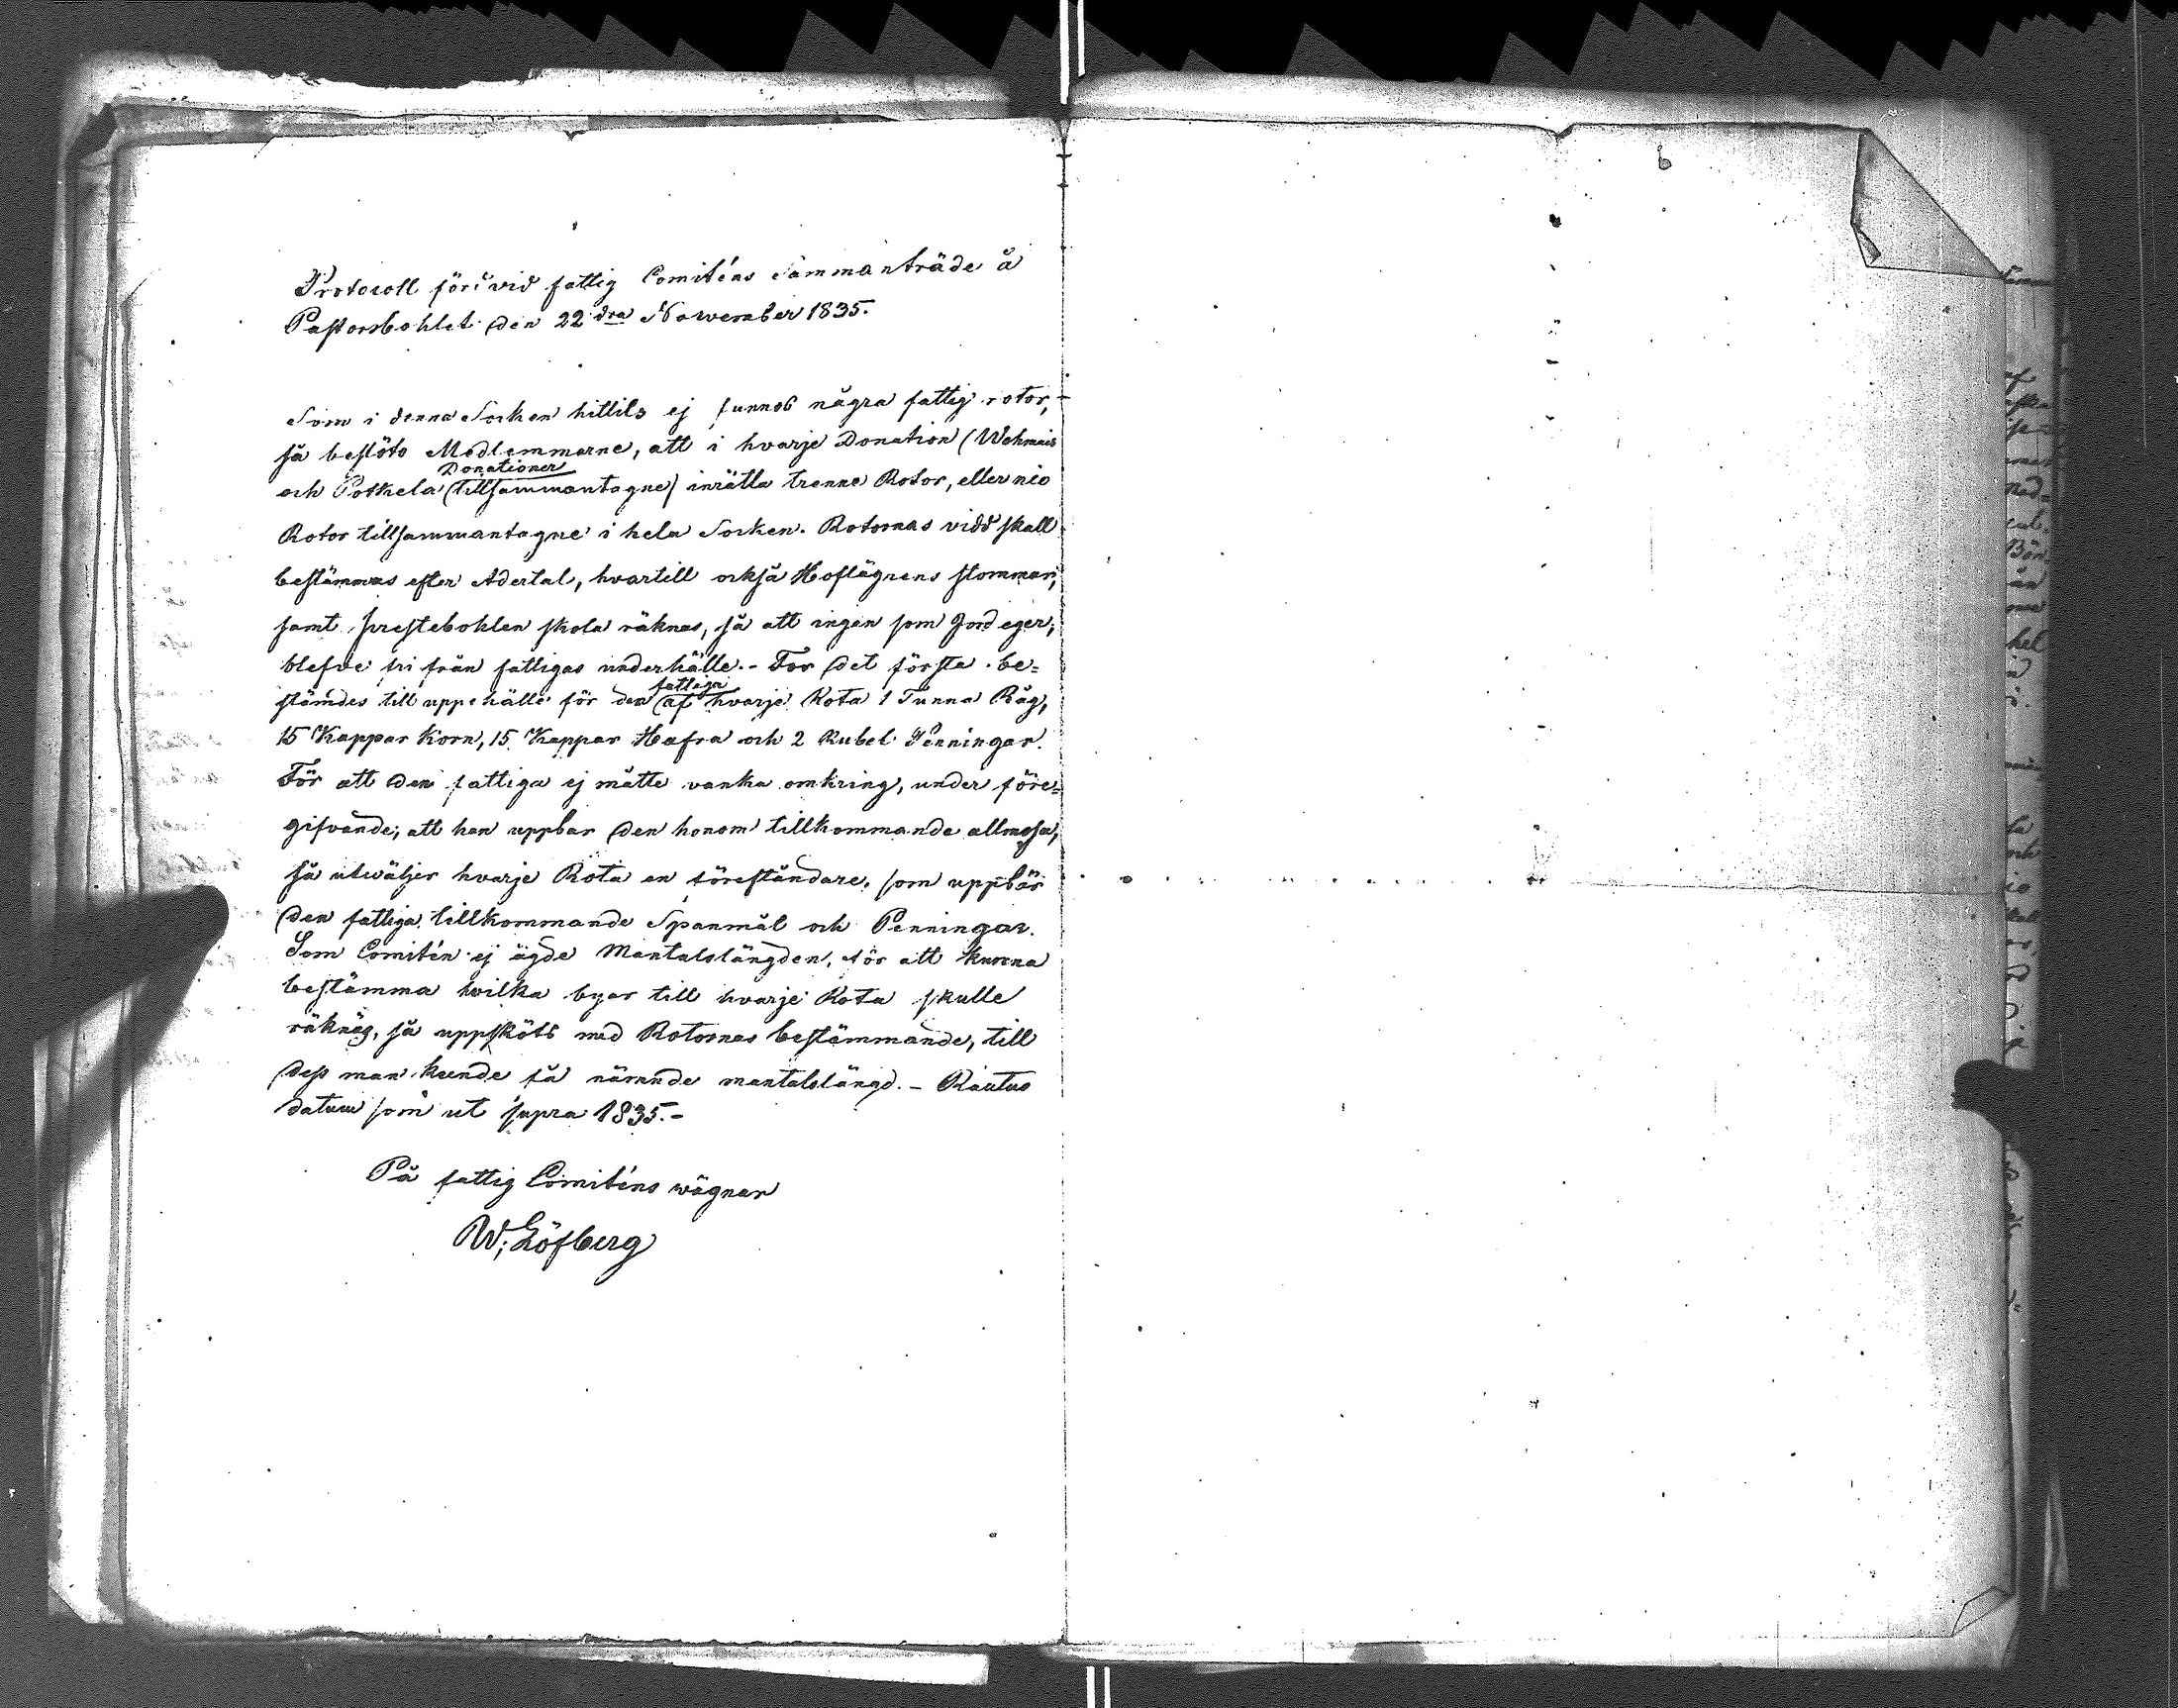 6
Protocoll fördt vid fattig Comiténs Sammanträde å
Pastorsbohlet den 22dra Nowember 1835.
Som i denna Socken hittils ej funnos några fattig rotor,
så beslöto Medlemmarne, att i hvarje Donation (Wehmais
Donationer
och Potkela tillsammantagne) inrätta trenne Rotor, eller nio
Rotor tillsammantagne i hela Socken. Rotornas vidd skall
bestämmas efter Adertal, hvartill också Hoflägrens stommar,
samt prestebohlen skola räknas, så att ingen som Jord eger,
blefve fri från fattigas underhålle. - For det första be=
fattiga
stämdes till uppehälle för den af hvarje Rota 1 Tunna Råg,
15 Kappar Korn, 15 Kappar Hafra och 2 Rubel Penningar.
För att den fattiga ej måtte vanka omkring, under före=
gifvande, att han uppbar den honom tillkommande allmosa,
så utwäljer hvarje Rota en föreståndare, som uppbär
den fattiga tillkommande Spanmål och Penningar.
Som Comitén ej ägde Mantalslängden, för att kunna
bestämma hvilka byar till hvarje Rota skulle
räknas, så uppsköts med Rotornas bestämmande, till
dess man kunde få nämnde mantalslängd. - Rautus
datum som ut supra 1835. -
På fattig Comiténs wägnar
W; Löfberg